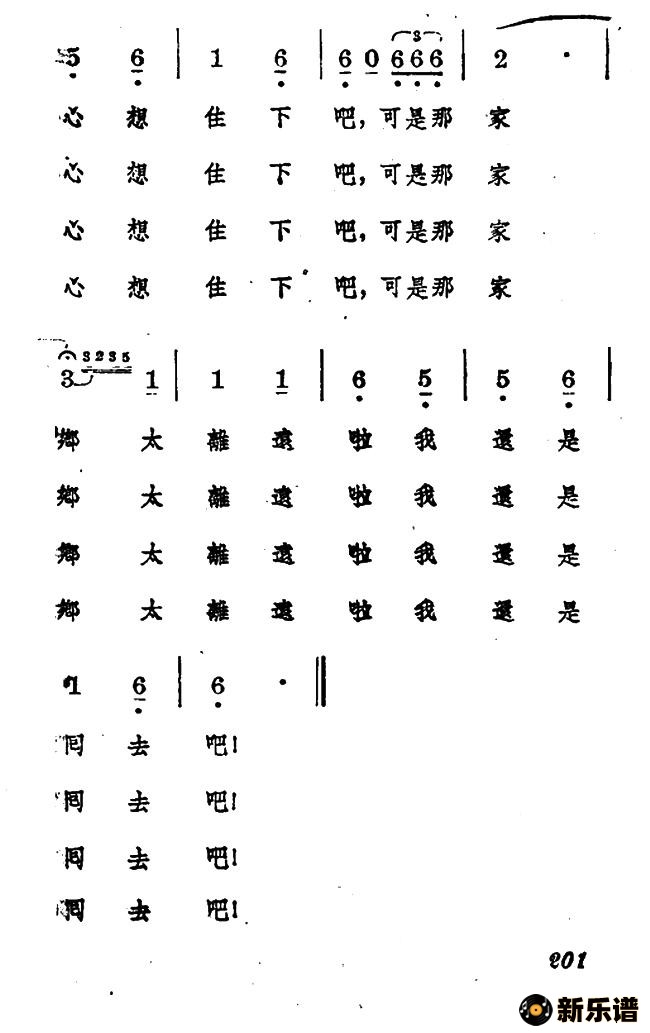 5 6 | 1 6 | 6 0 666 | 2 · |
3
心 想 住 下 吧，可是那 家
心 想 住 下 吧，可是那 家
心 想 住 下 吧，可是那 家
心 想 住 下 吧，可是那 家
3 3235 1 | 1 1 | 6 5 | 5 6 |
鄉 太 離 遠 啦 我 還 是
鄉 太 離 遠 啦 我 還 是
鄉 太 離 遠 啦 我 還 是
鄉 太 離 遠 啦 我 還 是
1 6 | 6 · ‖
囘 去 吧！
囘 去 吧！
囘 去 吧！
囘 去 吧！
201
新乐谱